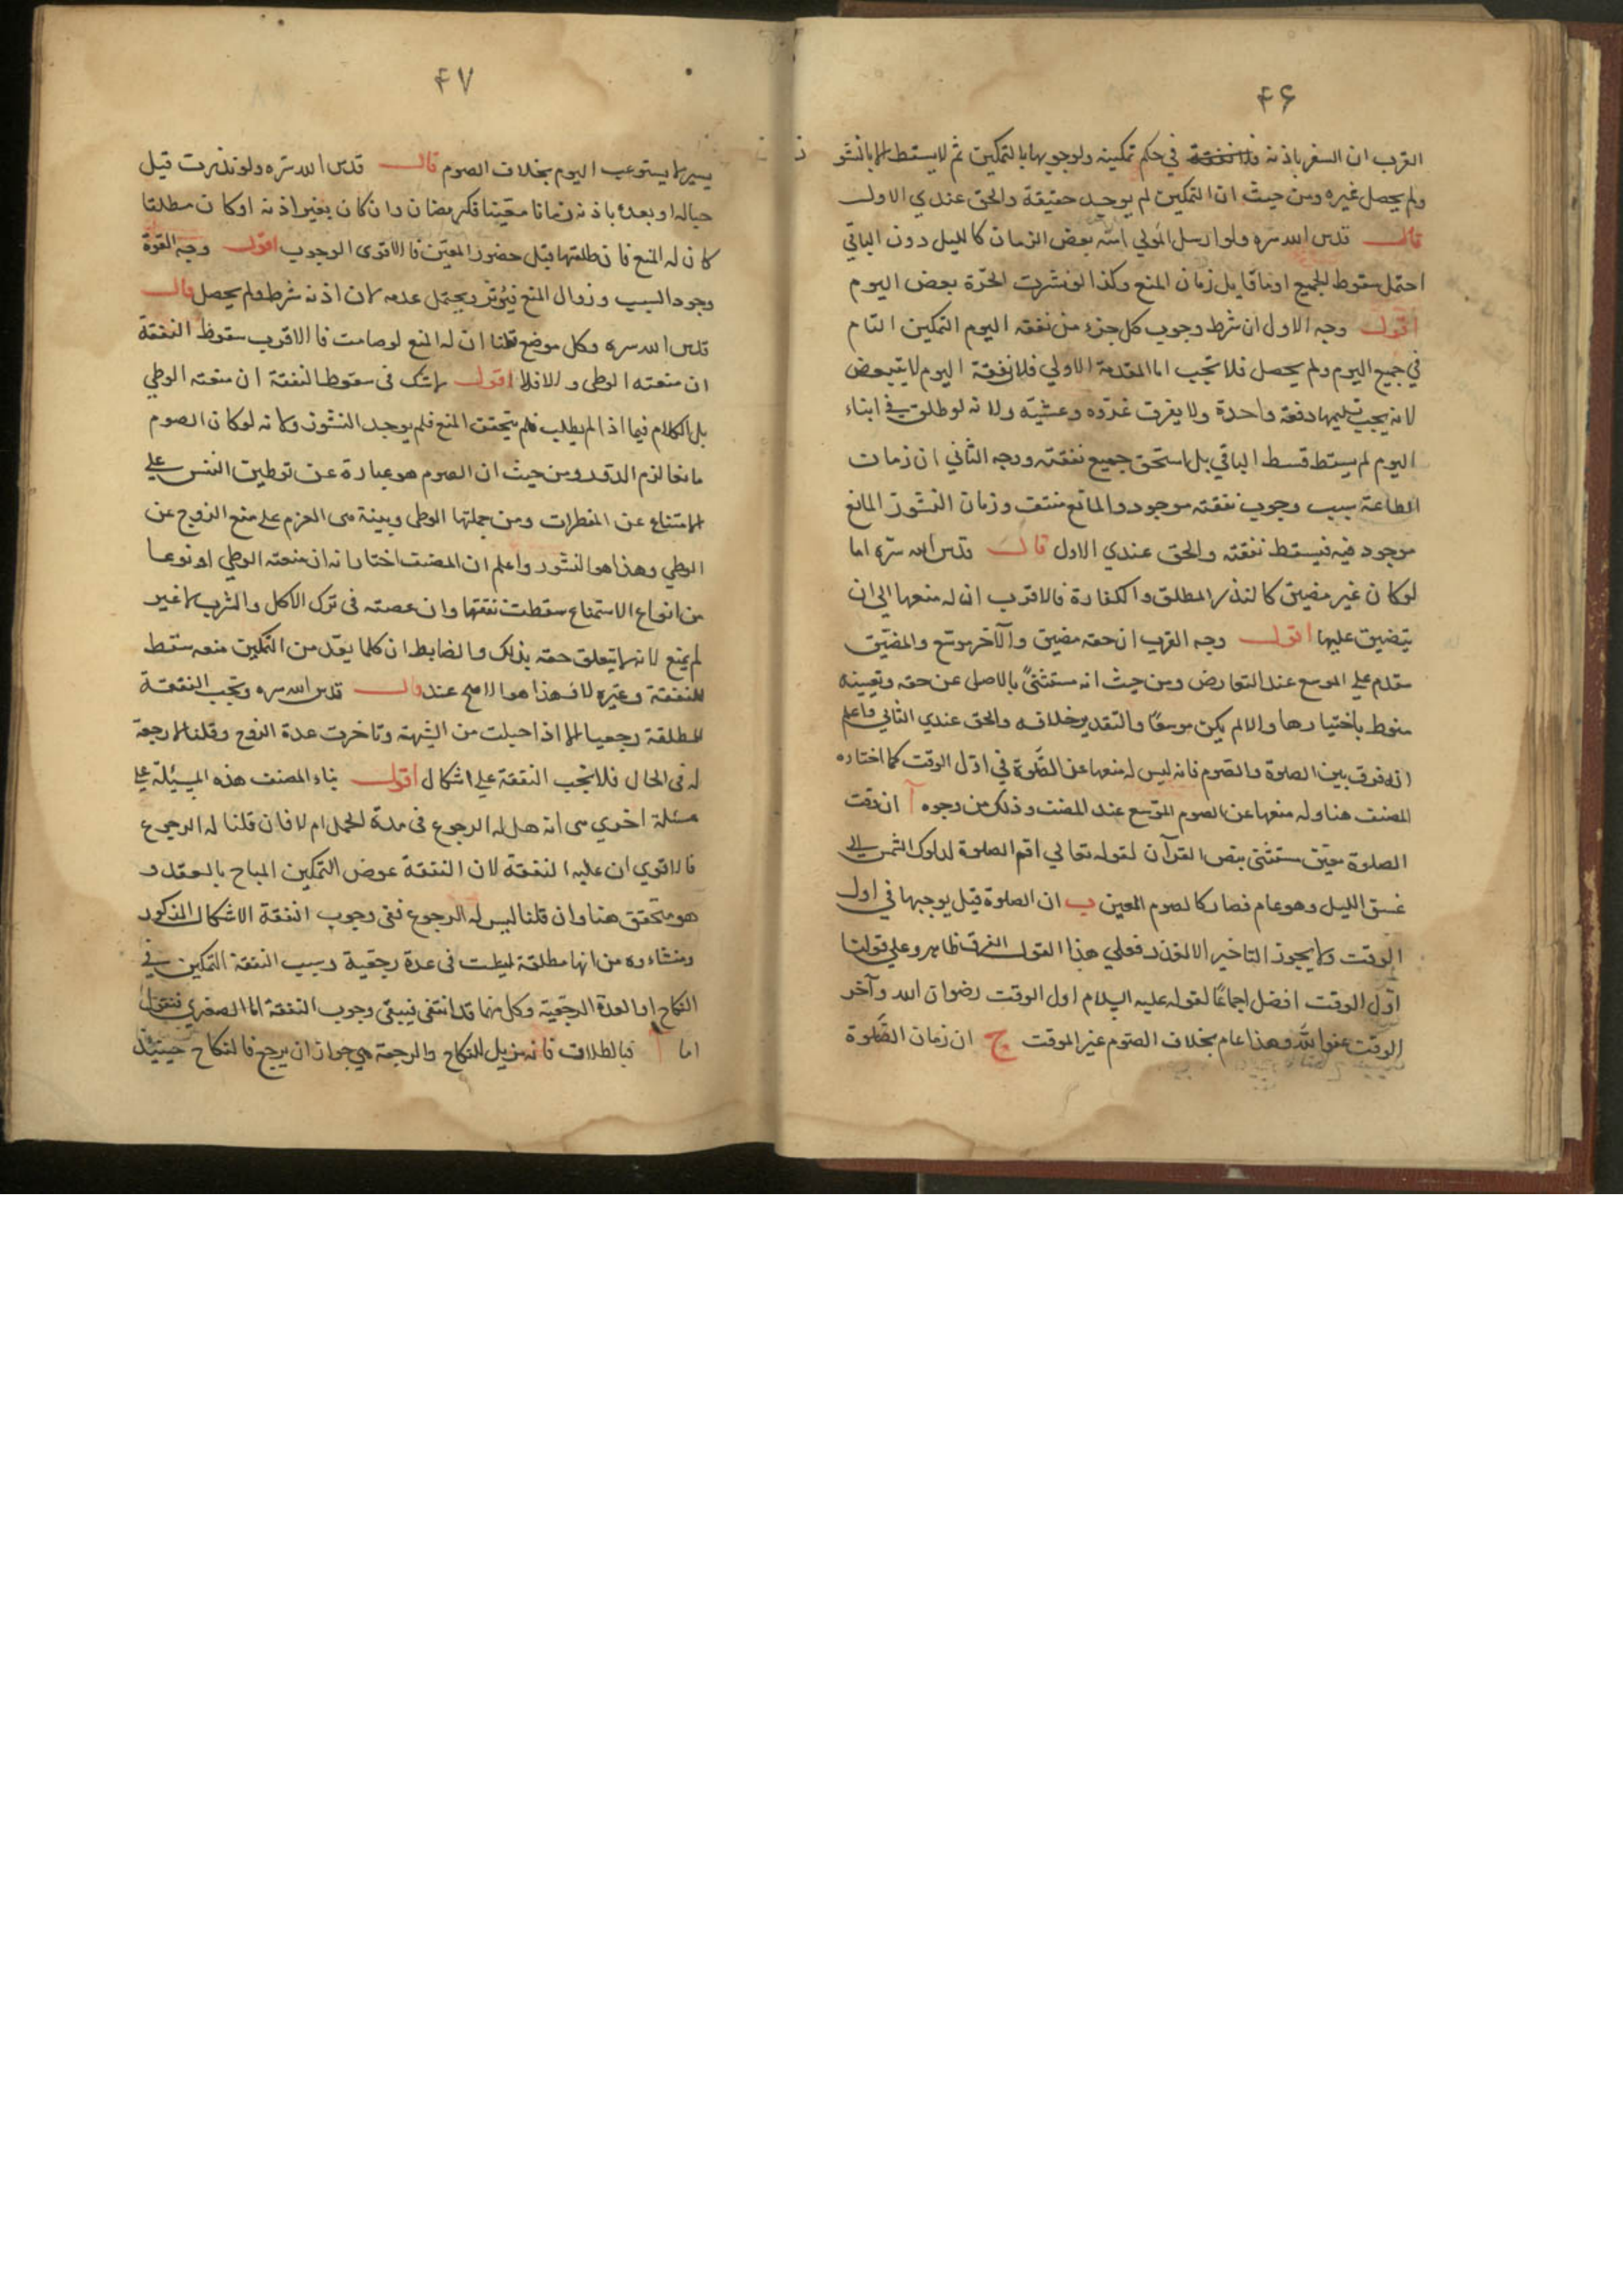 ۴۶
القرب ان السفر باذنه في حكم تمكينه ولوجوبها بالتمكين ثم لا يسقط الا بالنشوز
ولم يحصل غيره ومن حيث ان التمكين لم يوجد حقيقة والحق عندي الاول
قال قدس الله سره ولو ارسل المولي امته بعض الزمان كالليل دون الباقي
احتمل سقوط الجميع او ما قابل زمان المنع وكذا لو نشزت الحرة بعض اليوم
اقول وجه الاول ان شرط وجوب كل جزء من نفقه اليوم التمكين التام
في جميع اليوم ولم يحصل فلا تجب اما المقدمة الاولي فلان نفقة اليوم لا يتبعض
لانه يجب تسليمها دفعة واحدة ولا يفرق غدوه وعشيته ولانه لو طلق في اثناء
اليوم لم يسقط قسط الباقي بل استحق جميع نفقته ووجه الثاني ان زمان
الطاعة سبب وجوب نفقته موجود والمانع منتف وزمان النشوز المانع
موجود فيه فيسقط نفقته والحق عندي الاول قال قدس الله سره اما
لو كان غير مضيق كالنذر المطلق والكفارة فالاقرب ان له منعها الي ان
يتضيق عليها اقول وجه القرب ان حقه مضيق والآخر موسع والمضيق
مقدم علي الموسع عند التعارض ومن حيث انه مستثنى بالاصل عن حقه وتعيينه
منوط باختيارها والا لم يكن موسعا والتقدير خلافه والحق عندي الثاني واعلم
انه فرق بين الصلوة والصوم فانه ليس له منعها عن الصلوة في اول الوقت كما اختاره
المصنف هنا وله منعها عن الصوم الموسع عند المصنف وذلك من وجوه آ ان وقت
الصلوة معين مستثنى بنص القرآن لقوله تعالي اقم الصلوة لدلوك الشمس الى
غسق الليل وهو عام فصار كالصوم المعين ب ان الصلوة قيل بوجبها في اول
الوقت ولا يجوز التاخير الا لعذر فعلي هذا القول الفرق ظاهر وعلي قولنا
اول الوقت افضل اجماعا لقوله عليه السلام اول الوقت رضوان الله وآخر
الوقت عفو الله وهذا عام بخلاف الصوم غير الموقت ج ان زمان الصلوة
۴۷
يسير لا يستوعب اليوم بخلاف الصوم قال قدس الله سره ولو نذرت قبل
حباله او بعده باذنه زمانا معينا فكرمضان وان كان بغير اذنه او كان مطلقا
كان له المنع فان طلقها قبل حضور المعين فالاقوى الوجوب اقول وجه القوة
وجود السبب وزوال المنع فيؤثر ويحتمل عدمه لان اذنه شرط ولم يحصل قال
قدس الله سره وكل موضع قلنا ان له المنع لو صامت فالاقرب سقوط النفقة
ان منعته الوطى والا فلا اقول لا شك فى سقوط النفقة ان منعته الوطي
بل الكلام فيما اذا لم يطلب فلم يتحقق المنع فلم يوجد النشوز ولانه لو كان الصوم
مانعا لزم الدور ومن حيث ان الصوم هو عبارة عن توطين النفس على
الامتناع عن المفطرات ومن جملتها الوطى وبينة هى العزم على منع الزوج عن
الوطي وهذا هو النشوز واعلم ان المصنف اختار انه ان منعته الوطي او نوعا
من انواع الاستمتاع سقطت نفقتها وان عصته فى ترك الاكل والشرب لا غير
لم يمنع لانه لا يتعلق حقه بذلك والضابط ان كلما يعد من التمكين منعه سقط
للنفقة وغيره لا فهذا هو الاصح عنده قال قدس الله سره وتجب النفقة
للمطلقة رجعيا الا اذا حبلت من الشبهة وتاخرت عدة الزوج وقلنا لا رجعة
له فى الحال فلا تجب النفقة على اشكال اقول بناء المصنف هذه المسئلة على
مسئلة اخري هى انه هل له الرجوع فى مدة الحمل ام لا فان قلنا له الرجوع
فالاقوي ان عليه النفقة لان النفقة عوض التمكين المباح بالعقد و
هو متحقق هنا وان قلنا ليس له الرجوع ففى وجوب النفقة الاشكال المذكور
ومنشاءوه من انها مطلقة ليست فى عدة رجعية وسبب النفقة التمكين في
النكاح او العدة الرجعية وكل منهما قد انتفى فينتفي وجوب النفقة اما الصغري فنقول
اما آ فبالطلاق فانه مزيل للنكاح والرجعة هي جواز ان يرجع فالنكاح حينئذ